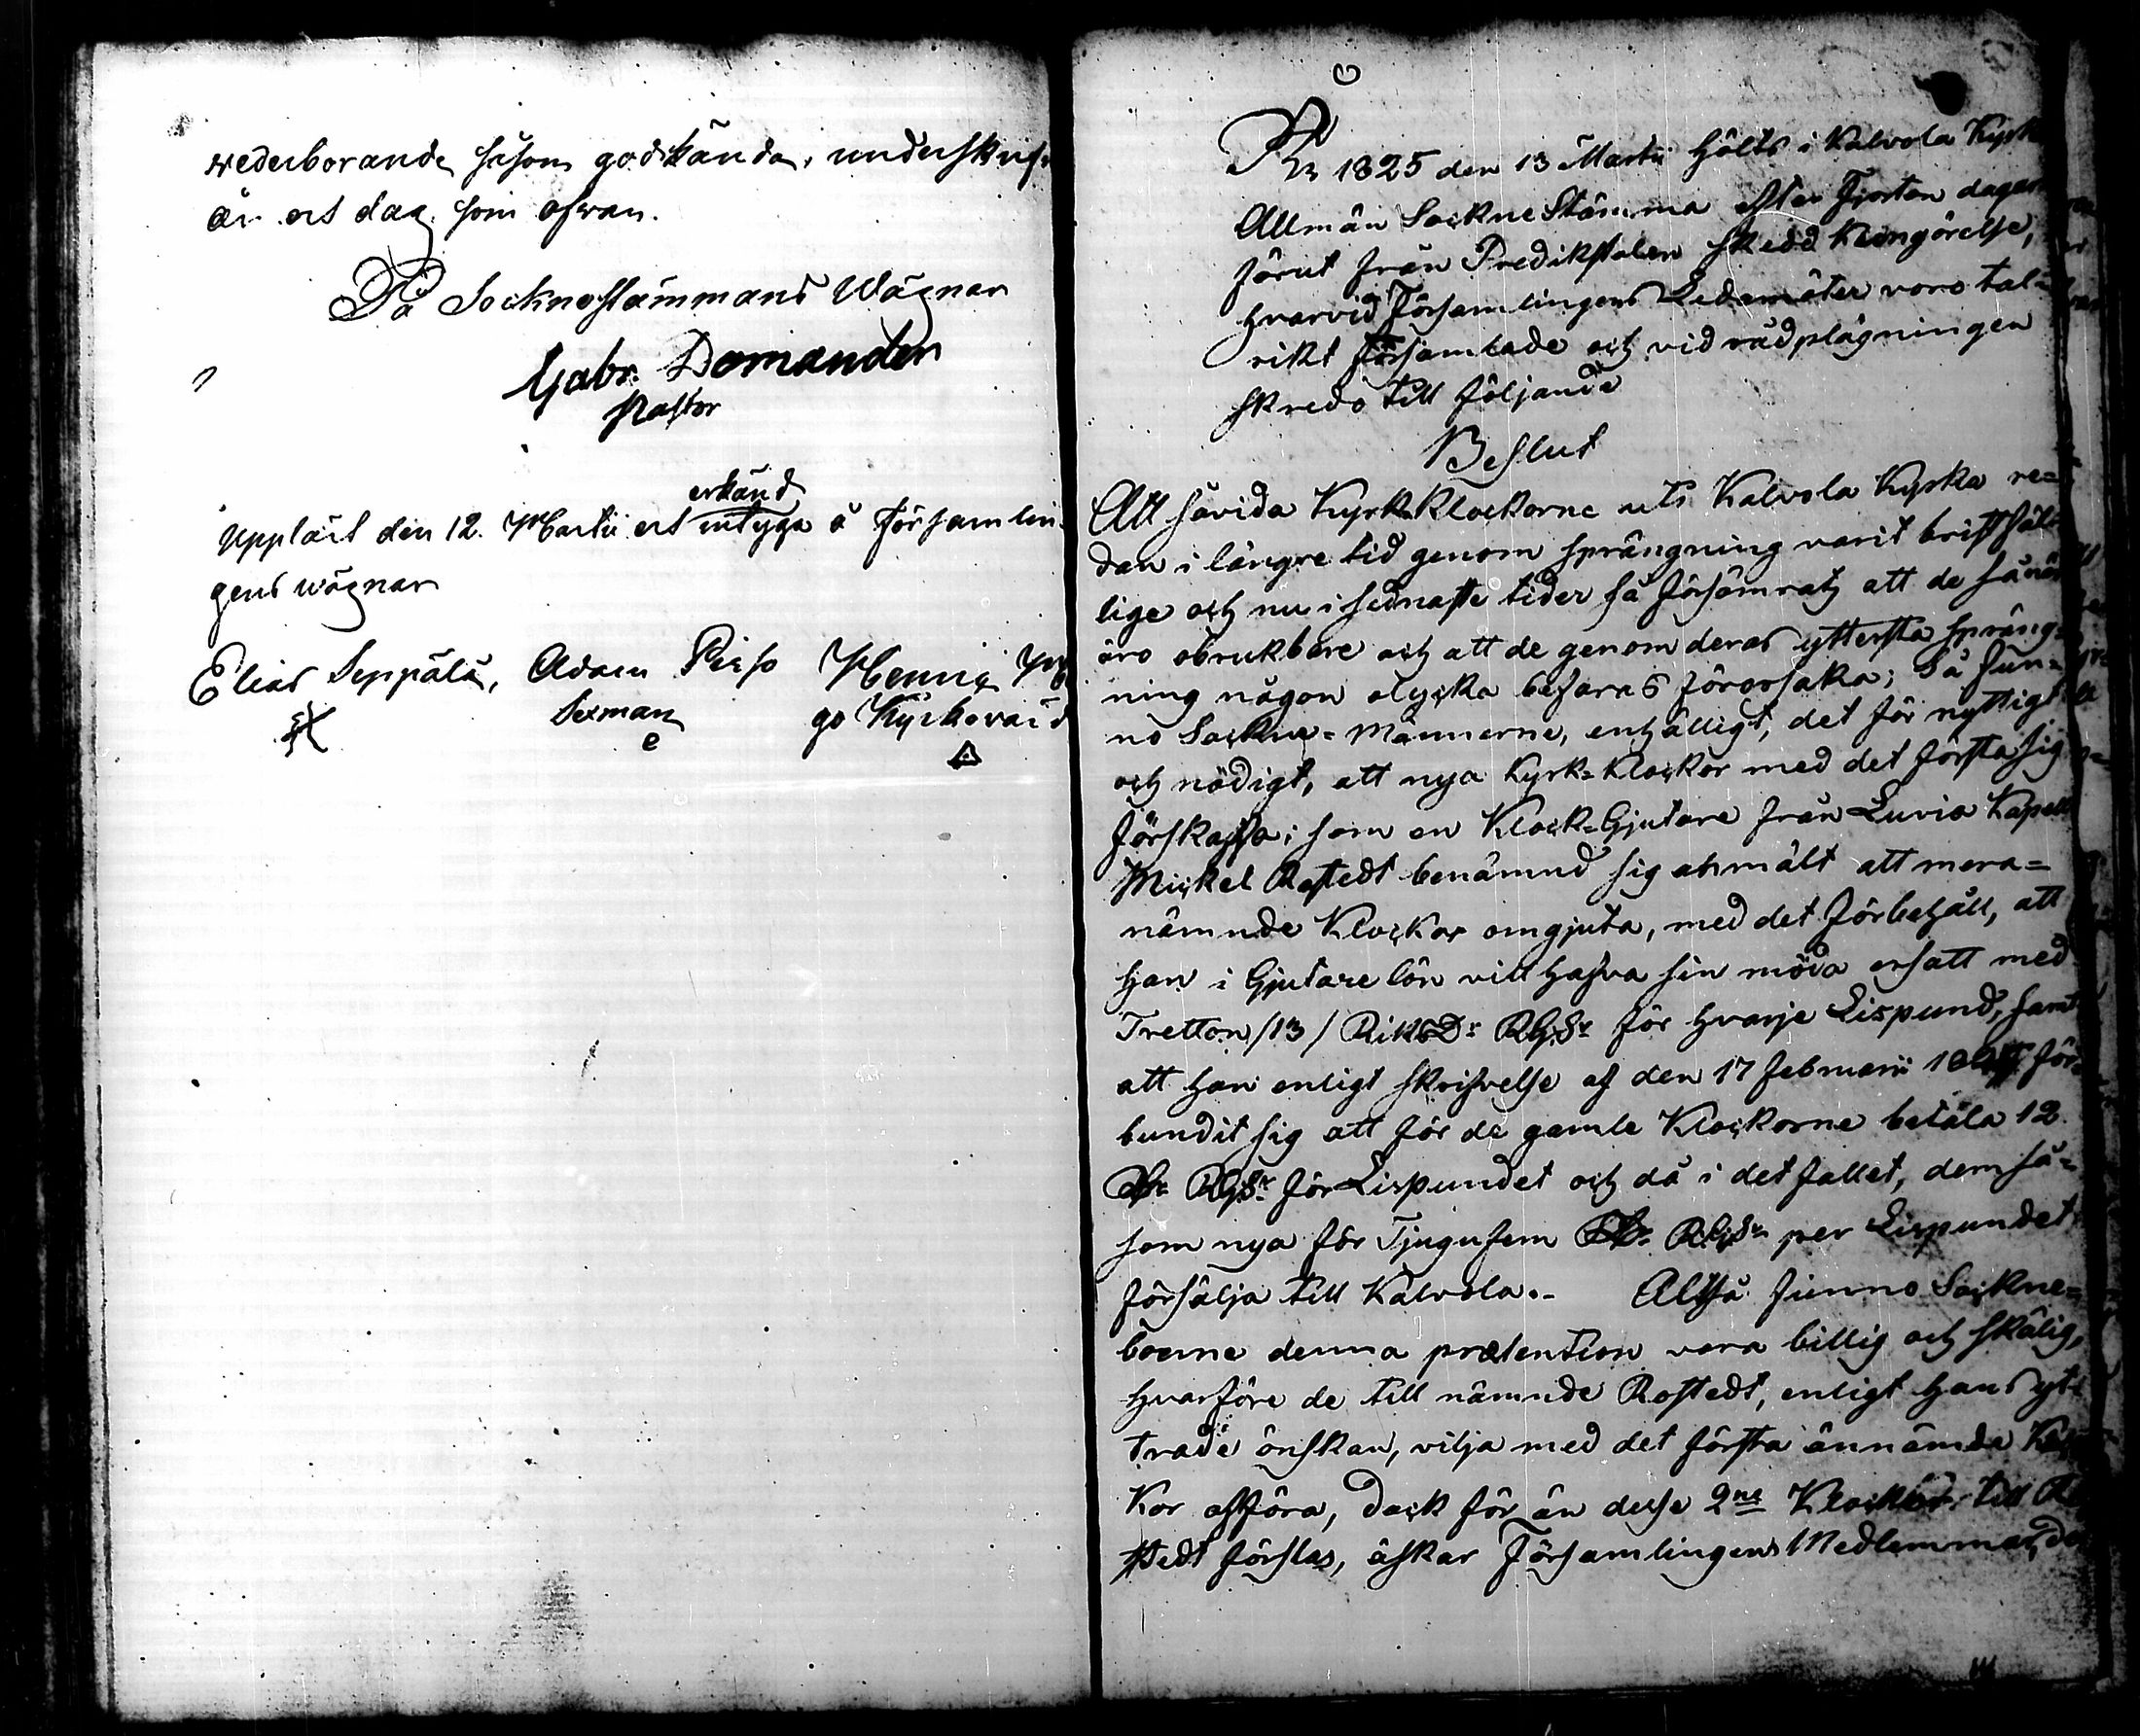 wederborande såsom godkända, underskrif-
år et dag som ofwan.
På Socknestämmans Wägnar
Gabr. Domander
Pastor
erkänd
Uppläst den 12. Martii et intyga å Församlin-
gens wägnar
Elias Seppälä, Adam Hening
Sexman go Kyrkovärd
År 1825 den 13 Martii hölts i Kalvola Kyrk
Allmän Sockne Stämma efter Fjorton dagar
förut från Predikstolen skedd Kungörelse,
hvarvid Församlingens Ledamöter voro tal-
rikt församlade och vid rådplägningen
skreds till följande
Beslut
Att såvida Kyrk Klockorne uti Kalvola Kyrka re=
dan i längre tid genom sprängning varit bristfäl-
lige och nu i sednaste tider så försämrats att de
äro obrukbare och att de genom deras yttersta spräng=
ning någon olycka befaras förorsaka; Så fun-
no Sockne=Männerne, enhälligt, det för nyttigt
och nödigt, att nya Kyrk=Klockor med det första sig
förskaffa; som en Klock=Gjutare från Luvia Kapell
Mickel Rostedt benämnd sig anmält att mera=
nämnde Klockor omgjuta, med det förbehåll, att
han i Gjutare lön vill hafva sin möda ersatt med
Tretton /13/ Riks Dr RGSr för hvarje Lispund, samt
att han enligt skrifvelse af den 17 Februarii för-
bundit sig att för de gamle Klockorne betala 12
Dr RGSr för Lispundet och då i det fallet, dem så=
som nya för Tjugufem Dr RGSr per Lispundet
försälja till Kalvola.- Altså funno Sockne=
boerne denna prætention vara billig och skälig,
hvarföre de till nämnde Rostedt, enligt hans yt=
trade önskan, vilja med det första
kor afföra, dock för än desse 2ne Klockor till Ro
stedt förslas, äskar Församlingens Medlemmar, de